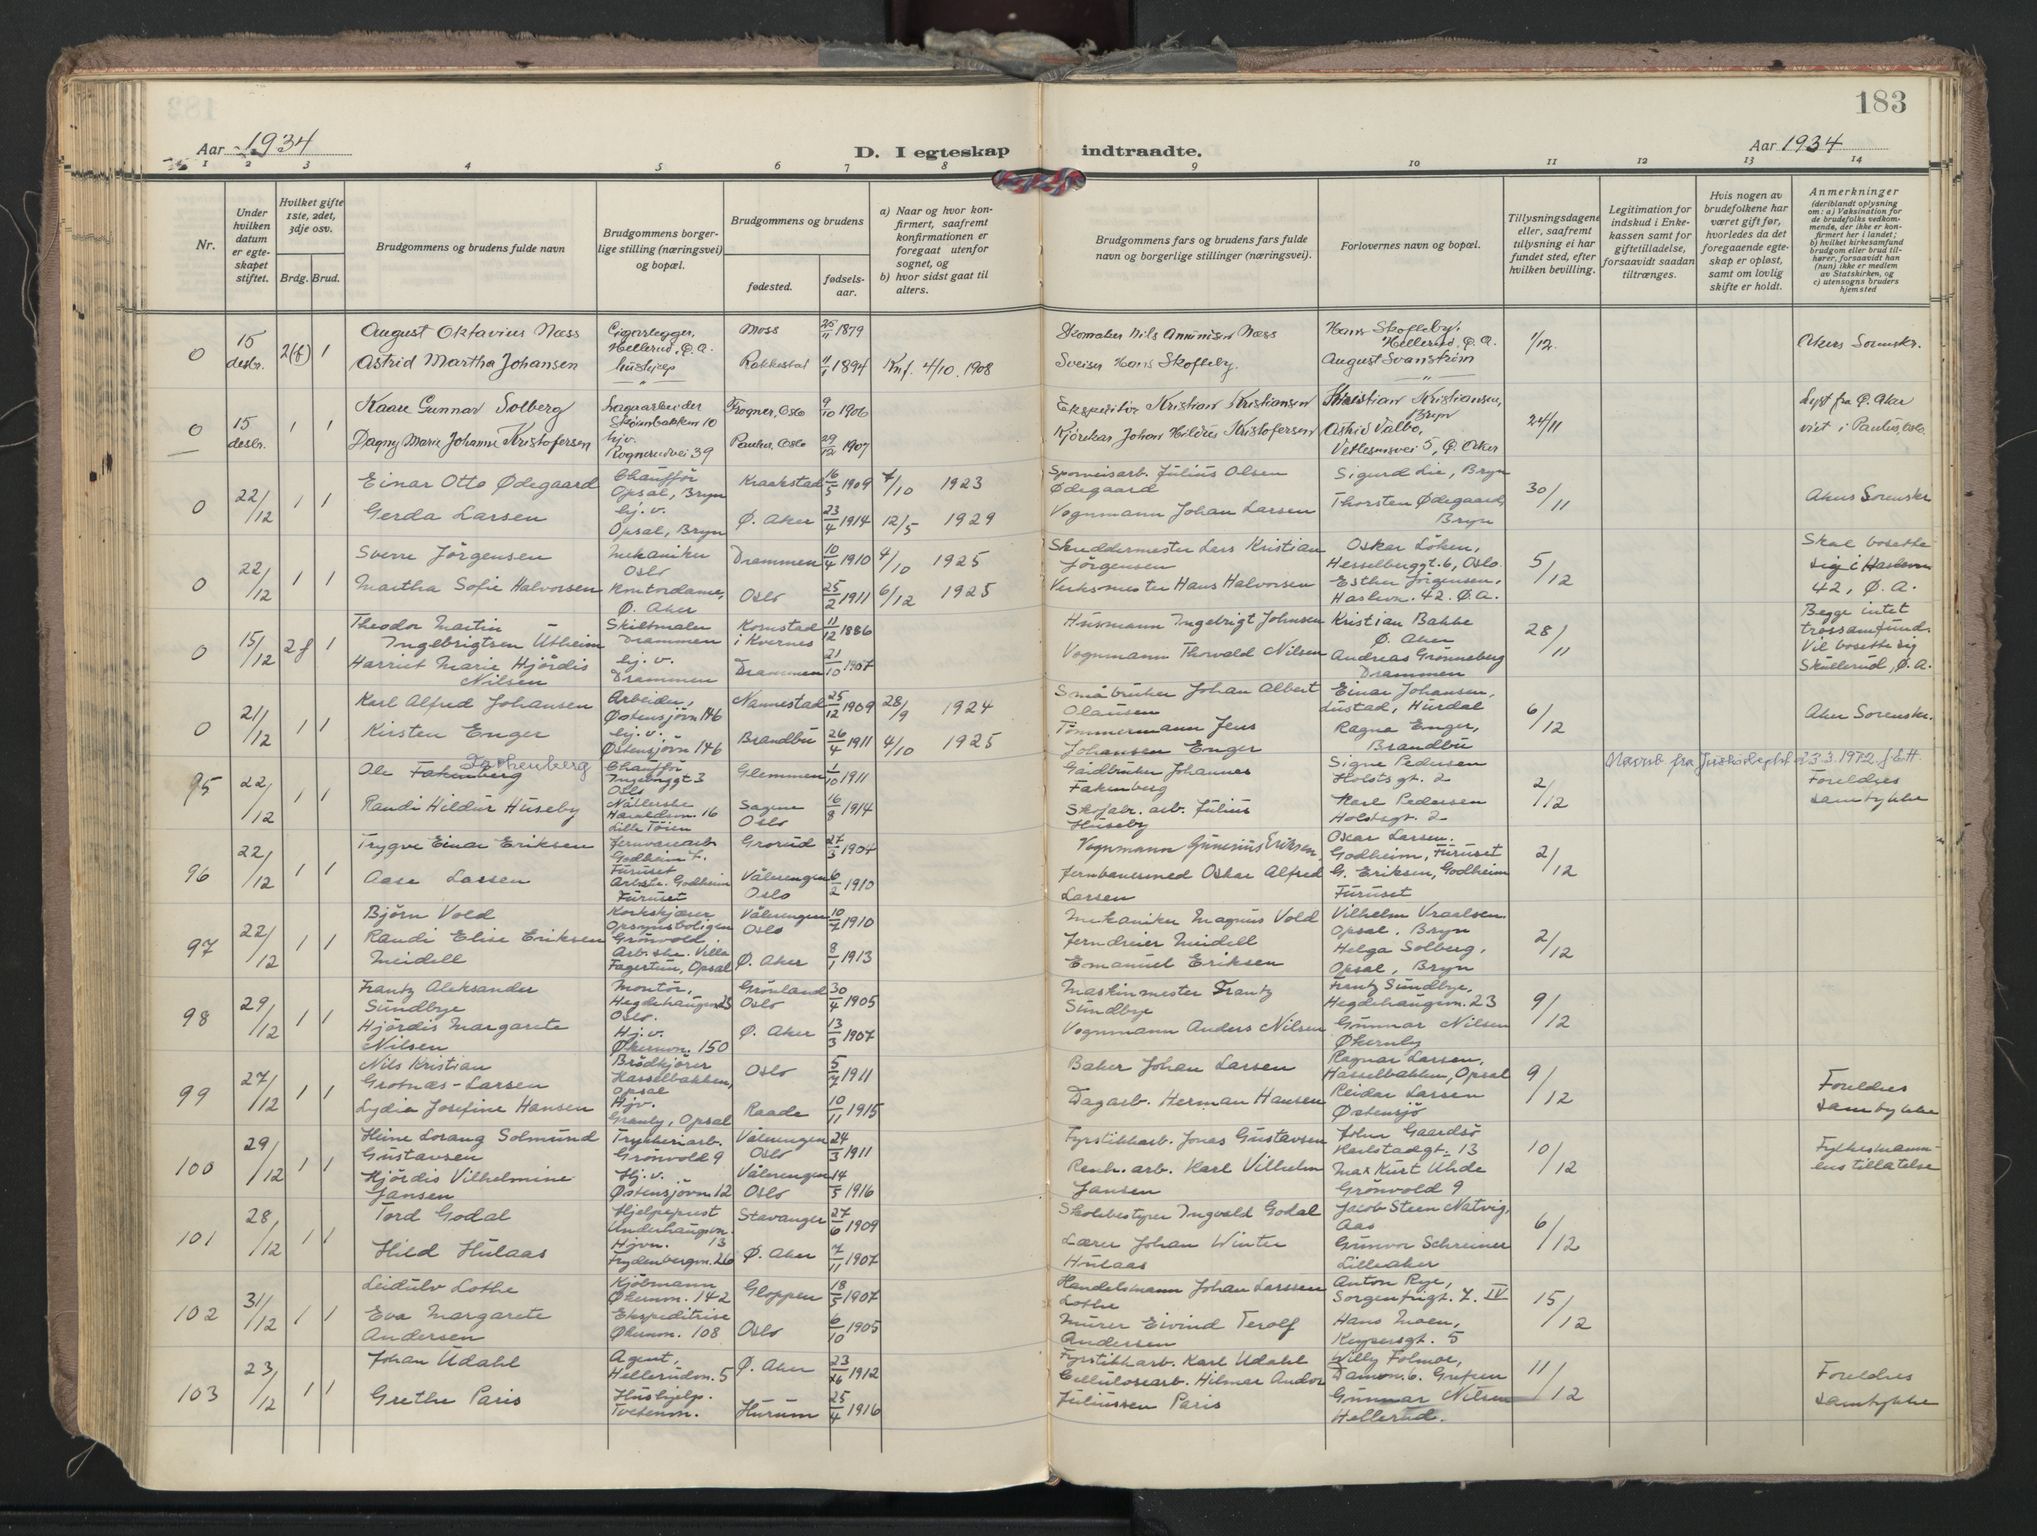 183
Aar 1934
D. I egteskap indtraadte.
Aar 1934
1 2 3 4 5 6 7 8 9 10 11 12 13 14
Nr.
Under hvilken datum er egte-skapet stiftet.
Hvilket gifte 1ste, 2det, 3dje osv.
Brdg. Brud.
Brudgommens og brudens fulde navn
Brudgommens borger-lige stilling (næringsvei) og bopæl.
Brudgommens og brudens
fødested.
fødsels-aar.
a) Naar og hvor kon-firmert, saafremt konfirmationen er foregaat utenfor sognet, og
b) hvor sidst gaat til alters.
Brudgommens fars og brudens fars fulde navn og borgerlige stillinger (næringsvei).
Forlovernes navn og bopæl.
Tillysningsdagene eller, saafremt tillysning ei har fundet sted, efter hvilken bevilling.
Legitimation for indskud i Enke-kassen samt for giftetilladelse, forsaavidt saadan tiltrænges.
Hvis nogen av brudefolkene har været gift før, hvorledes da det foregaaende egte-skap er opløst, samt om lovlig skifte er holdt.
Anmerkninger (deriblandt oplysning om: a) Vaksination for de brudefolks vedkom-mende, der ikke er kon-firmert her i landet; b) hvilket kirkesamfund brudgom eller brud til-hører, forsaavidt han (hun) ikke er medlem av Statskirken, og c) utensogns bruders hjemsted
0 15 desbr. 2(f) 1
August Oktavius Næss Hellerud, Ø. A. Moss 25/11 1879 Skomaker Nils Amunsen Næss Hans Skofteby, Hellerud, Ø. A. 1/12. Akers Sorenskr.
Astrid Martha Johansen hushjelp Rakkestad 11/1 1894 Knf. 4/10. 1908 Sveiser Hans Skofteby. August Svanstrøm
0 15 desbr. 1 1
Kaare Gunnar Solberg Lagerarbeider Skøienbakken 10 Frogner, Oslo 9/10 1906 Ekspeditør Kristian Kristiansen Kristian Kristiansen, Bryn 24/11 Lyst fra Ø. Aker
Dagny Marie Johanne Kristofersen hjv. Rognerudvei 39 Paulus, Oslo 29/12 1907 Kjørekar Johan Hildus Kristofersen Astrid Valbo, Vetlesensvei 5, Ø. Aker viet i Paulus, Oslo.
0 22/12 1 1
Einar Otto Ødegaard Chauffør Opsal, Bryn Kraakstad 16/5 1909 7/10 1923 Sporveisarb. Julius Olsen Ødegaard Sigurd Lie, Bryn 30/11 Akers Sorenskr
Gerda Larsen hj.v. Opsal, Bryn Ø. Aker 23/4 1914 12/5 1929 Vognmann Johan Larsen Thorsten Ødegaard, Bryn
0 22/12 1 1
Sverre Jörgensen Mekaniker Oslo Drammen 10/4 1910 4/10 1925 Skreddermester Lars Kristian Jörgensen Oskar Löken, Hesselberggt. 6, Oslo. 5/12 Skal bosette sig i Haslevn
Martha Sofie Halvorsen Kontordame, Ø. Aker Oslo 25/2 1911 6/12 1925 Verksmester Hans Halvorsen Esther Jörgensen, Haslevn. 42. Ø. A. 42, Ø. A.
0 15/12 2f 1
Theodor Martin Ingebrigtsen Utheim Skiltmaler Drammen Kornstad i Kvernes 11/12 1886 Husmann Ingebrigt Johnsen Kristian Bakke Ø. Aker 28/11 Begge intet trossamfund.
Harriet Marie Hjördis Nilsen hj.v. Drammen Drammen 21/10 1907 Vognmann Thorvald Nilsen Andreas Grönneberg Drammen Vil bosette sig Skullerud, Ø. A.
0 21/12 1 1
Karl Alfred Johansen Arbeider, Østensjövn 146 Nannestad 25/12 1909 28/9 1924 Småbruker Johan Albert Olausen Einar Johansen, Lustad, Hurdal 6/12 Aker Sorenskr.
Kirsten Enger hj.v. Østensjövn 146 Brandbu 26/4 1911 4/10 1925 Tömmermann Jens Johansen Enger Ragna Enger, Brandbu
95 22/12 1 1
Ole Fakenberg Chauffør Oslo Glemmen 1/10 1911 Gårdbruker Johannes Fakenberg Signe Pedersen Holtsgt. 2 2/12 Foreldres samtykke
Randi Hildur Huseby Lille Töien Sagene Oslo 16/8 1914 Skofabr. arb. Julius Huseby Karl Pedersen Holtsgt. 2
96 22/12 1 1
Trygve Einar Eriksen Jernvarearb Godheim Furuset Grorud 27/3 1904 Vognmann Gunerius Eriksen, Oskar Larsen. Godheim, Furuset 2/12
Aase Larsen Arbske. Godheim Furuset Vålerengen Oslo 6/2 1910 Jernbanesmed Oskar Alfred Larsen G. Eriksen, Godheim Furuset
97 22/12 1 1
Björn Vold Opsynsboligen Grönvold. Vålerengen Oslo 10/7 1910 Mekaniker Magnus Vold Vilhelm Vraalsen Opsal, Bryn 2/12
Randi Elise Eriksen Meidell Arb.ske. Villa Fagertun, Opsal Ø. Aker 8/1 1913 Jerndreier Meidell Emanuel Eriksen Helga Solberg, Opsal, Bryn
98 29/12 1 1
Frantz Aleksander Sundbye Montör, Hegdehaugsvn 23 Oslo. Grönland Oslo 30/4 1905 Maskinmester Frantz Sundbye Frantz Sundbye, Hegdehaugsvn. 23 9/12
Hjördis Margarete Nilsen Hj.v. Økernvn. 150 Ø. Aker 13/3 1907 Vognmann Anders Nilsen Gunnar Nilsen Økernby
99 27/12 1 1
Nils Kristian Grotnæs-Larsen Brödkjörer Hasselbakken, Opsal Oslo 5/7 1911 Baker Johan Larsen Ragnar Larsen, Hasselbakken, Opsal 9/12 Foreldres samtykke
Lydia Josefine Hansen Hjv. Granly, Opsal Raade 10/11 1915 Dagarb. Herman Hansen Reidar Larsen Østensjö
100 29/12 1 1
Heine Lorang Solmund Gustavsen Trykkeriarb. Grönvold 9 Vålerengen Oslo 24/3 1911 Fyrstikkarb. Jonas Gustavsen John Gaardsö Karlstadgt. 13 10/12 Fylkesmann-ens tillatelse
Hjördis Vilhelmine Jansen Hj.v. Østensjövn. 12 Vålerengen Oslo 14/5 1916 Renh. arb. Karl Vilhelm Jansen Max Kurt Uhde Grönvold 9
101 28/12 1 1
Tord Godal Hjelpeprest Underhaugsvn. 13 Stavanger 27/6 1909 Skolebestyrer Ingvald Godal Jacob Steen Natvig, Aas 6/12
Hild Hulaas Hjvn. Frydenbergvn. 26 Ø. Aker 7/11 1907 Lærer Johan Winter Hulaas Gunvor Schreiner Lilleaker
102 31/12 1 1
Leidulv Lothe Kjöbmann Økernvn. 142 Gloppen 18/5 1907 Handelsmann Johan Larssen Lothe Anton Rye, Sorgenfrigt. 7. IV 15/12
Eva Margarete Andersen Ekspeditrise Økernvn. 108 Oslo 6/10 1905 Murer Eivind Terolf Andersen Hans Moen, Keysersgt. 5
103 23/12 1 1
Johan Udahl Agent, Hellerudvn. 5 Ø. Aker 23/ 1912 Fyrstikkarb. Karl Udahl Willy Folmoe, Damvn. 6. Grefsen 11/12 Foreldres samtykke
Grethe Paris Hushjelp. Tvetenvn. Hurum 25/4 1916 Cellulosearb. Hilmar Andor Juliussen Paris Gunnar Nilsen Hellerud.